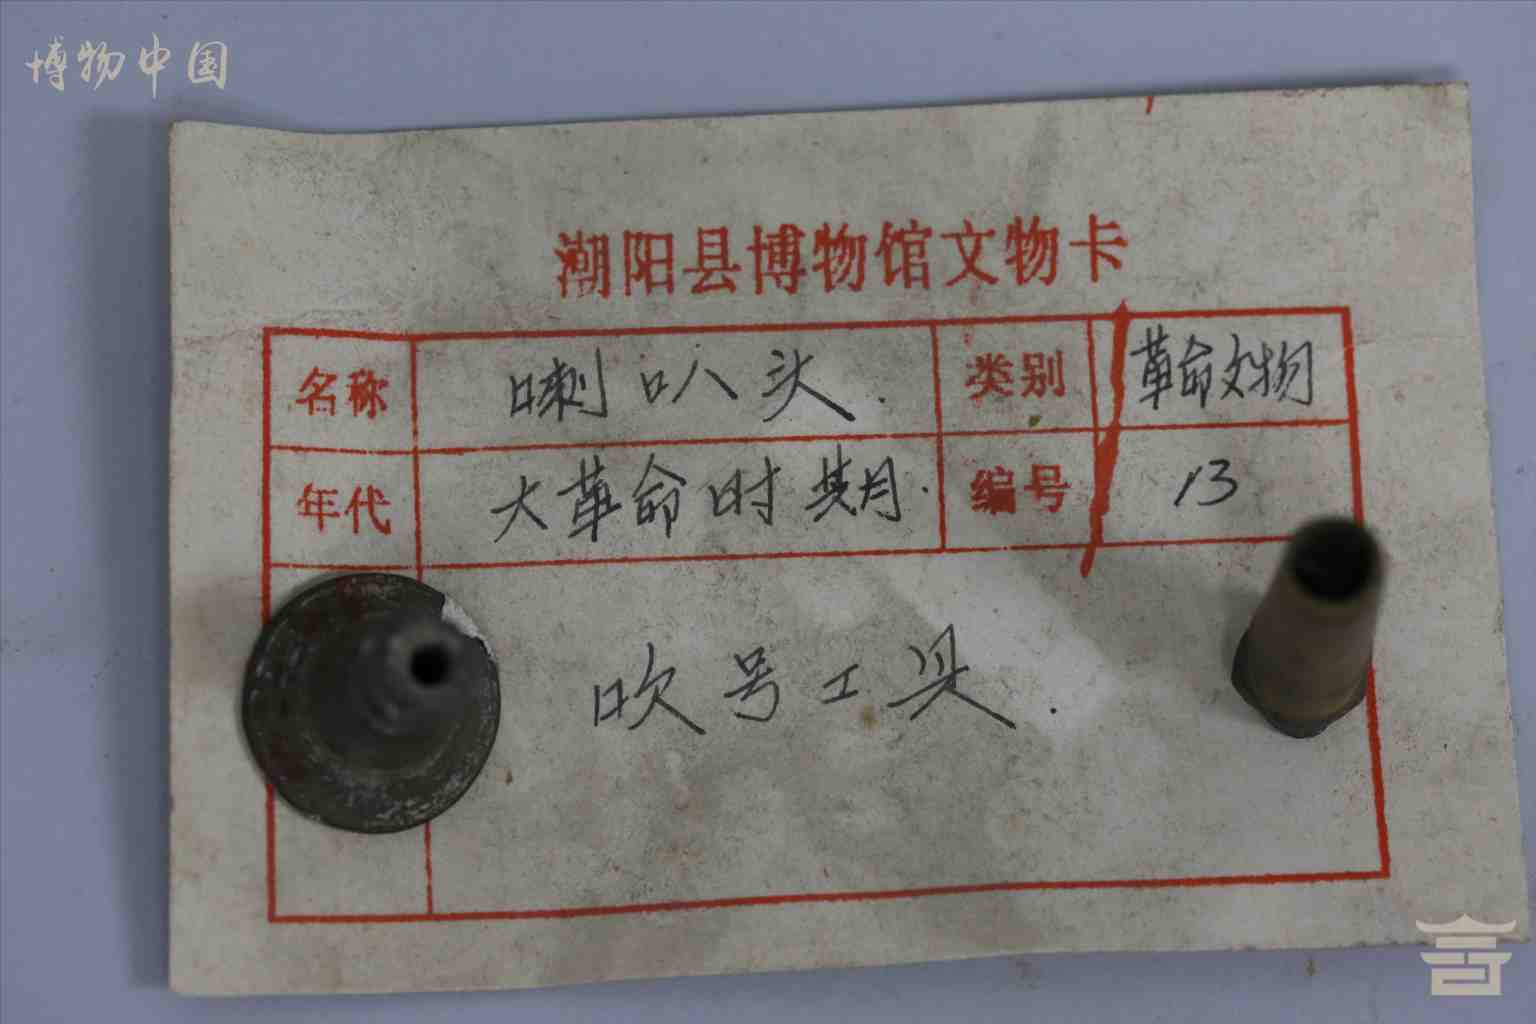 博物中国
潮阳县博物馆文物卡
名称 喇叭头. 类别 革命文物
年代 大革命时期. 编号 13
吹号工具.